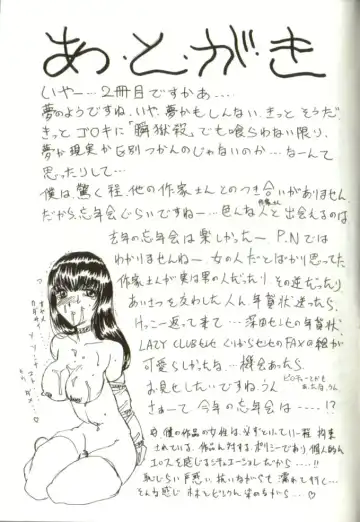 あ・と・が・き
いやー…2冊目ですかあ…
夢のようですね、いや、夢かもしんない、きっとそうだ、
きっとゴウキに「瞬獄殺」でも喰らわない限り、
夢か現実か区別つかんのじゃないのか…なーんて
思ったりして…
僕は、驚く程、他の作家さんとのつき合いがありません
だから、忘年会ぐらいですねー…色んな人と出会えるのは
作家さん
去年の忘年会は楽しかったー P.Nでは
わかりませんねー 女の人だとばかり思ってた
作家さんが実は男の人だったり その逆だったり
あいさつを交わした人に年賀状送ったら、
けっこー返って来て…深田センセの年賀状、
LAZY CLUBセンセのFAXの絵が
可愛らしかったなー…機会あったら、
お見せしたいですね、うん
さぁーて 今年の忘年会は――!?
僕の作品の女性は必ずといっていい程 拘束
されている、作品に対するポリシーであり、個人的に
エロスを感じるシチュエーションだから…!!
恥じらい戸惑い、抗いながらも 濡れて行く…
そんな感じ